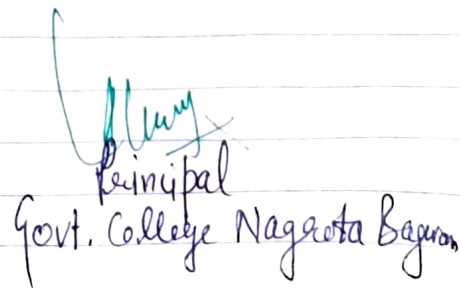 Principal
Govt. College Nagrota Bagwan